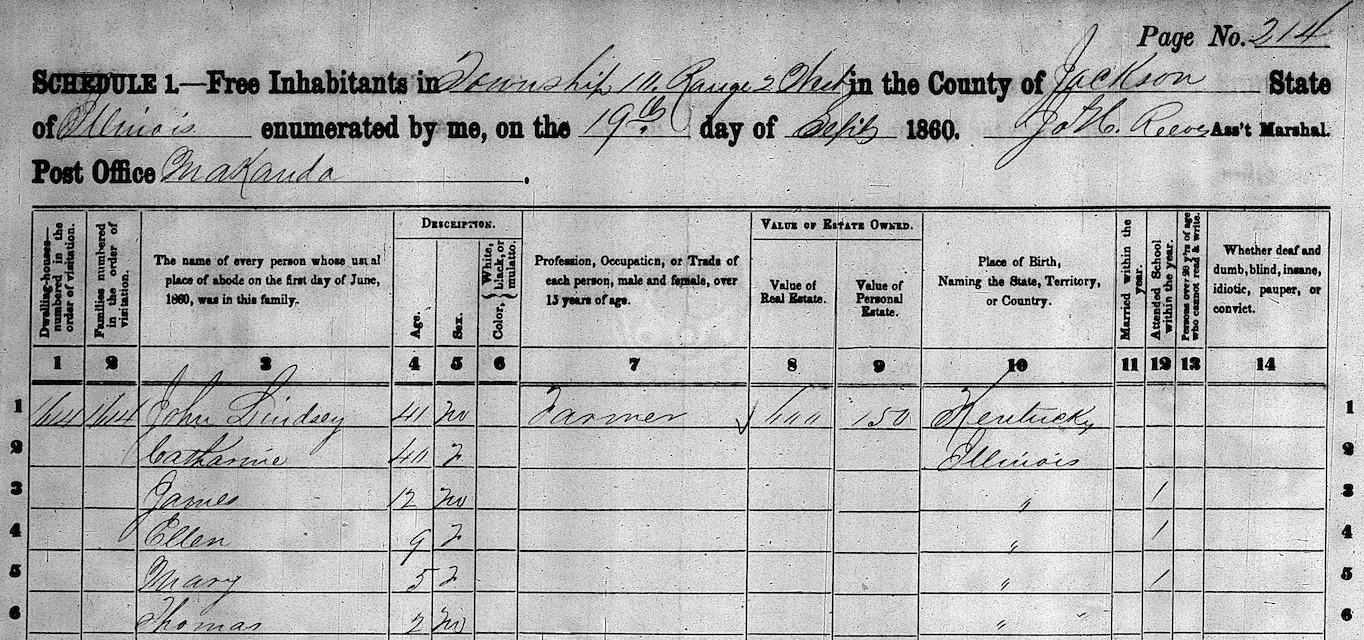 Page No. 214
SCHEDULE 1.—Free Inhabitants in Township 10. Range 2 West in the County of Jackson State
of Illinois enumerated by me, on the 19th day of Sept 1860. Jo H. Reeves Ass't Marshal.
Post Office Makanda.
Dwelling-houses—numbered in the order of visitation.
Families numbered in the order of visitation.
The name of every person whose usual place of abode on the first day of June, 1860, was in this family.
DESCRIPTION.
Age.
Sex.
Color, { White, black, or mulatto.
Profession, Occupation, or Trade of each person, male and female, over 15 years of age.
VALUE OF ESTATE OWNED.
Value of Real Estate.
Value of Personal Estate.
Place of Birth, Naming the State, Territory, or Country.
Married within the year.
Attended School within the year.
Persons over 20 y'rs of age who cannot read & write.
Whether deaf and dumb, blind, insane, idiotic, pauper, or convict.
1 2 3 4 5 6 7 8 9 10 11 12 13 14
1 John Lindsey m Farmer 150 Kentucky 1
2 Catharine 40 f Illinois 2
3 James 12 m " 1 3
4 Ellen 9 f " 1 4
5 Mary 5 f " 1 5
6 Thomas 2 m " 6